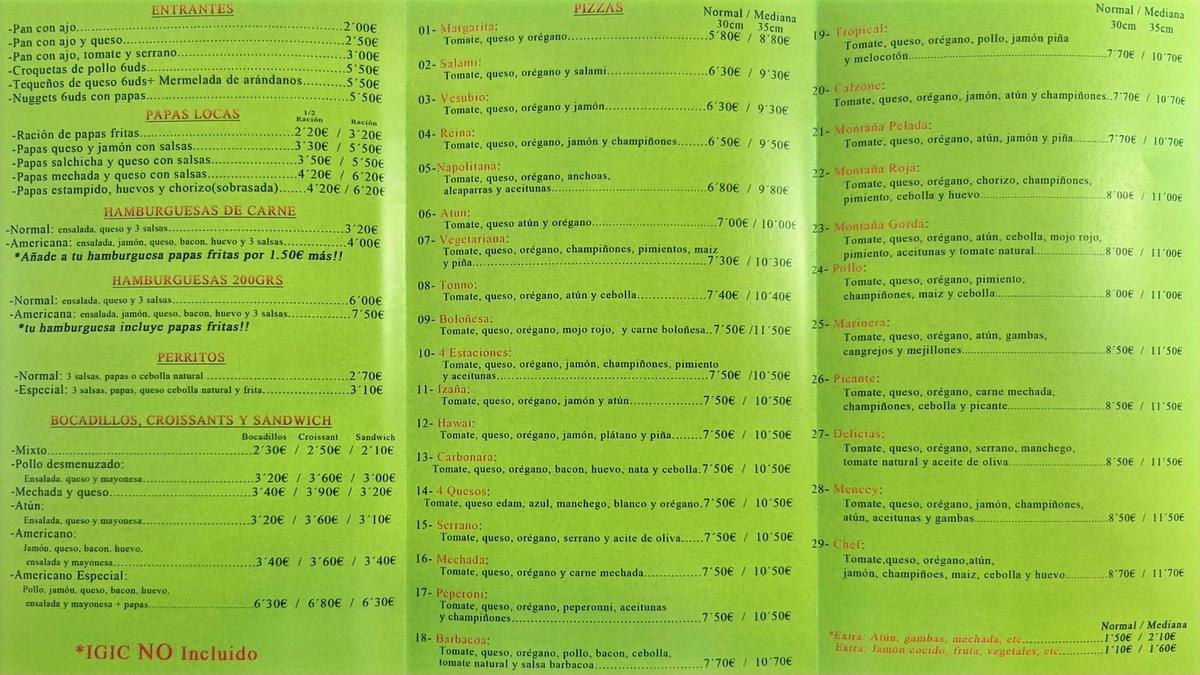 ENTRANTES
-Pan con ajo.....2´00€
-Pan con ajo y queso.....2´50€
-Pan con ajo, tomate y serrano.....3´00€
-Croquetas de pollo 6uds.....5´50€
-Tequeños de queso 6uds+ Mermelada de arándanos.....5´50€
-Nuggets 6uds con papas.....5´50€
PAPAS LOCAS
1/2 Ración Ración
-Ración de papas fritas.....2´20€ / 3´20€
-Papas queso y jamón con salsas.....3´30€ / 5´50€
-Papas salchicha y queso con salsas.....3´50€ / 5´50€
-Papas mechada y queso con salsas.....4´20€ / 6´20€
-Papas estampido, huevos y chorizo(sobrasada).....4´20€ / 6´20€
HAMBURGUESAS DE CARNE
-Normal: ensalada, queso y 3 salsas.....3´20€
-Americana: ensalada, jamón, queso, bacon, huevo y 3 salsas.....4´00€
*Añade a tu hamburguesa papas fritas por 1.50€ más!!
HAMBURGUESAS 200GRS
-Normal: ensalada, queso y 3 salsas.....6´00€
-Americana: ensalada, jamón, queso, bacon, huevo y 3 salsas.....7´50€
*tu hamburguesa incluye papas fritas!!
PERRITOS
-Normal: 3 salsas, papas o cebolla natural.....2´70€
-Especial: 3 salsas, papas, queso cebolla natural y frita.....3´10€
BOCADILLOS, CROISSANTS Y SÁNDWICH
Bocadillos Croissant Sandwich
-Mixto.....2´30€ / 2´50€ / 2´10€
-Pollo desmenuzado:
Ensalada, queso y mayonesa.....3´20€ / 3´60€ / 3´00€
-Mechada y queso.....3´40€ / 3´90€ / 3´20€
-Atún:
Ensalada, queso y mayonesa.....3´20€ / 3´60€ / 3´10€
-Americano:
Jamón, queso, bacon, huevo,
ensalada y mayonesa.....3´40€ / 3´60€ / 3´40€
-Americano Especial:
Pollo, jamón, queso, bacon, huevo,
ensalada y mayonesa + papas.....6´30€ / 6´80€ / 6´30€
*IGIC NO Incluido
PIZZAS
Normal / Mediana
30cm 35cm
01- Margarita:
Tomate, queso y orégano.....5´80€ / 8´80€
02- Salami:
Tomate, queso, orégano y salami.....6´30€ / 9´30€
03- Vesubio:
Tomate, queso, orégano y jamón.....6´30€ / 9´30€
04- Reina:
Tomate, queso, orégano, jamón y champiñones.....6´50€ / 9´50€
05-Napolitana:
Tomate, queso, orégano, anchoas,
alcaparras y aceitunas.....6´80€ / 9´80€
06- Atun:
Tomate, queso atún y orégano.....7´00€ / 10´00€
07- Vegetariana:
Tomate, queso, orégano, champiñones, pimientos, maiz
y piña.....7´30€ / 10´30€
08- Tonno:
Tomate, queso, orégano, atún y cebolla.....7´40€ / 10´40€
09- Boloñesa:
Tomate, queso, orégano, mojo rojo, y carne boloñesa..7´50€ /11´50€
10- 4 Estaciones:
Tomate, queso, orégano, jamón, champiñones, pimiento
y aceitunas.....7´50€ /10´50€
11- Izaña:
Tomate, queso, orégano, jamón y atún.....7´50€ / 10´50€
12- Hawai:
Tomate, queso, orégano, jamón, plátano y piña.....7´50€ / 10´50€
13- Carbonara:
Tomate, queso, orégano, bacon, huevo, nata y cebolla.7´50€ / 10´50€
14- 4 Quesos:
Tomate, queso edam, azul, manchego, blanco y orégano.7´50€ / 10´50€
15- Serrano:
Tomate, queso, orégano, serrano y acite de oliva.....7´50€ / 10´50€
16- Mechada:
Tomate, queso, orégano y carne mechada.....7´50€ / 10´50€
17- Peperoni:
Tomate, queso, orégano, peperonni, aceitunas
y champiñones.....7´50€ / 10´50€
18- Barbacoa:
Tomate, queso, orégano, pollo, bacon, cebolla,
tomate natural y salsa barbacoa.....7´70€ / 10´70€
Normal / Mediana
30cm 35cm
19- Tropical:
Tomate, queso, orégano, pollo, jamón piña
y melocotón.....7´70€ / 10´70€
20- Calzone:
Tomate, queso, orégano, jamón, atún y champiñones..7´70€ / 10´70€
21- Montaña Pelada:
Tomate, queso, orégano, atún, jamón y piña.....7´70€ / 10´70€
22- Montaña Roja:
Tomate, queso, orégano, chorizo, champiñones,
pimiento, cebolla y huevo.....8´00€ / 11´00€
23- Montaña Gorda:
Tomate, queso, orégano, atún, cebolla, mojo rojo,
pimiento, aceitunas y tomate natural.....8´00€ / 11´00€
24- Pollo:
Tomate, queso, orégano, pimiento,
champiñones, maiz y cebolla.....8´00€ / 11´00€
25- Marinera:
Tomate, queso, orégano, atún, gambas,
cangrejos y mejillones.....8´50€ / 11´50€
26- Picante:
Tomate, queso, orégano, carne mechada,
champiñones, cebolla y picante.....8´50€ / 11´50€
27- Delicias:
Tomate, queso, orégano, serrano, manchego,
tomate natural y aceite de oliva.....8´50€ / 11´50€
28- Mencey:
Tomate, queso, orégano, jamón, champiñones,
atún, aceitunas y gambas.....8´50€ / 11´50€
29- Chef:
Tomate,queso, orégano,atún,
jamón, champiñoes, maiz, cebolla y huevo.....8´70€ / 11´70€
Normal / Mediana
*Extra: Atún, gambas, mechada, etc.....1´50€ / 2´10€
Extra: Jamón cocido, fruta, vegetales, etc.....1´10€ / 1´60€